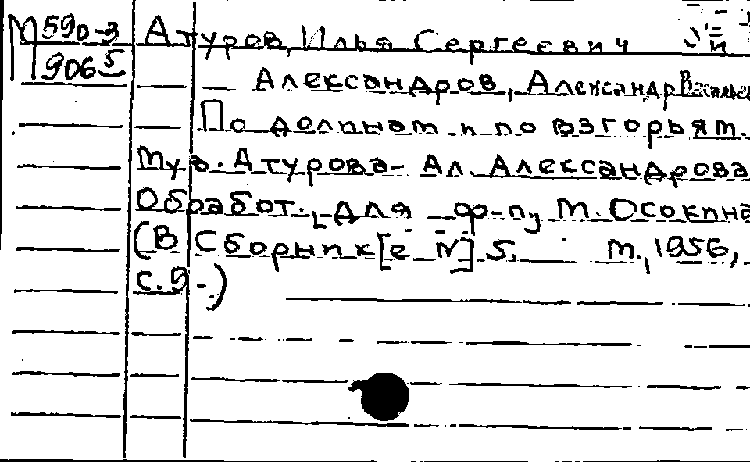 М 590-3 Атуров, Илья Сергеевич
9065 — Александров, Александр Василье
По долинам и по взгорьям.
Муз. Атурова - Ал. Александрова
Обработ. для ф-п, М. Осокина
(В Сборник[е №] 5. М., 1956,
с. 9-)